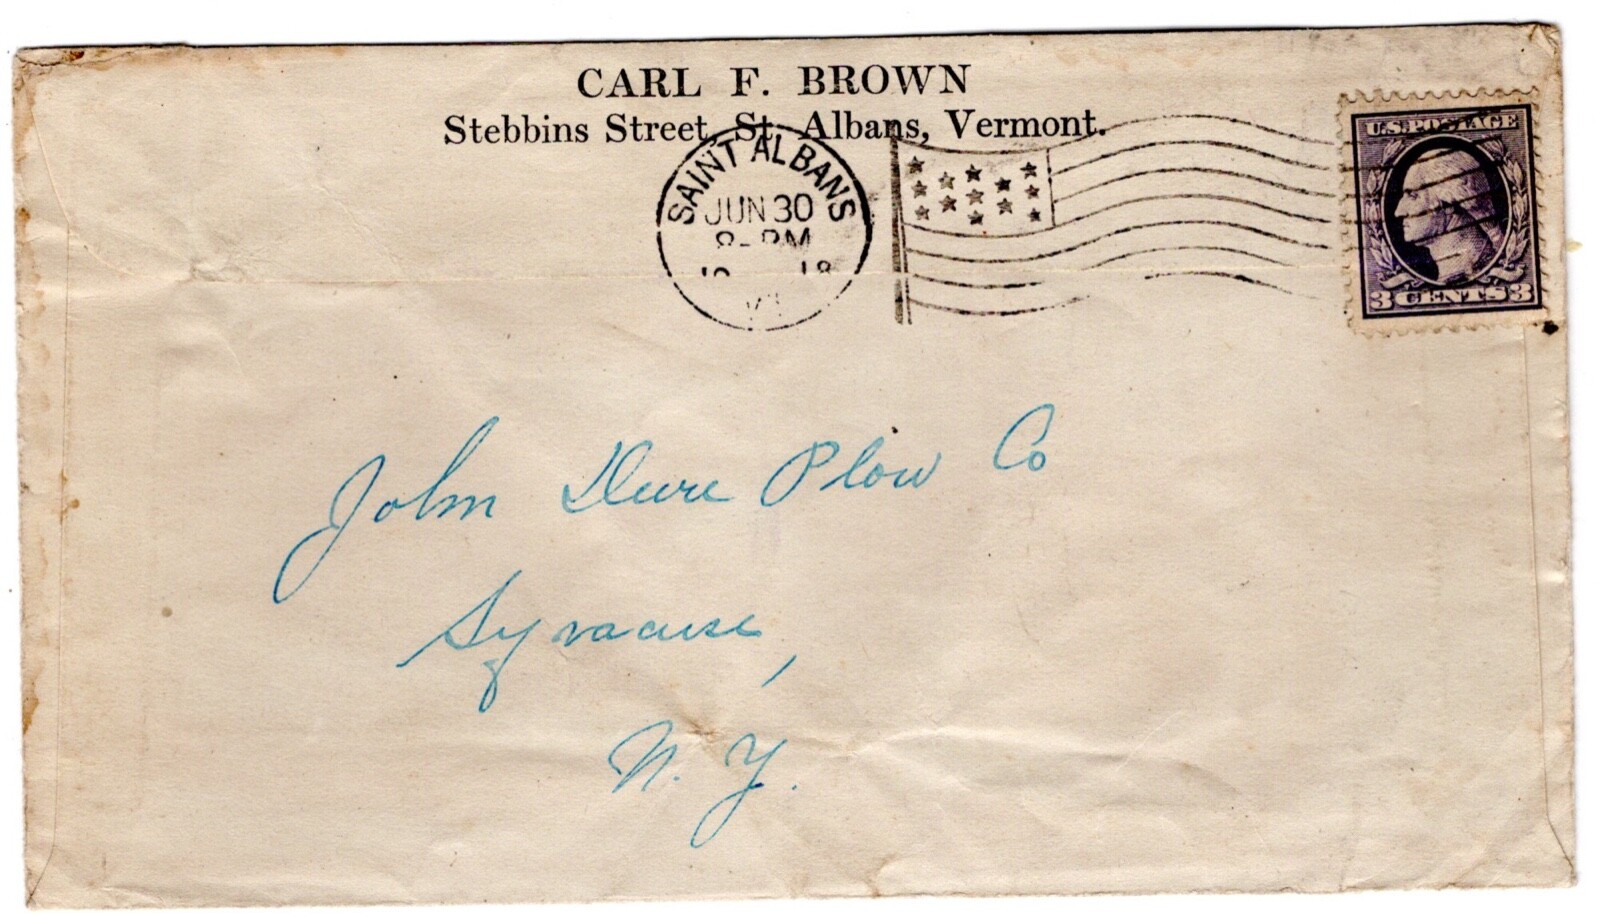 CARL F. BROWN
Stebbins Street, St. Albans, Vermont.
SAINT ALBANS
JUN 30
8-PM
18
VT
U.S. POSTAGE
3 CENTS 3
John Deere Plow Co
Syracuse,
N. Y.